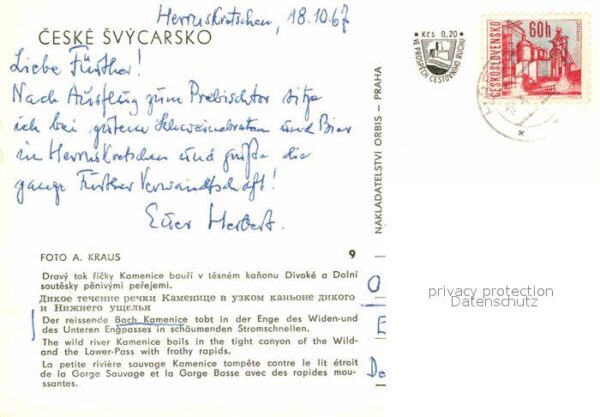 Herrnskretschen, 18.10.67
ČESKÉ ŠVÝCARSKO
Liebe Fürther!
Nach Ausflug zum Prebischtor sitze
ich bei gutem Schweinebraten und Bier
in Herrnskretschen und grüße die
ganze Fürther Verwandtschaft!
Euer Herbert.
Kčs 0,20
VE PROSPĚCH CESTOVNÍHO RUCHU
60h
ČESKOSLOVENSKO
NAKLADATELSTVÍ ORBIS – PRAHA
FOTO A. KRAUS 9
Dravý tok říčky Kamenice bouří v těsném kaňonu Divoké a Dolní
soutěsky pěnivými peřejemi.
Дикое течение речки Каменице в узком каньоне дикого
и Нижнего ущелья
Der reissende Bach Kamenice tobt in der Enge des Widen-und
des Unteren Engpasses in schäumenden Stromschnellen.
The wild river Kamenice boils in the tight canyon of the Wild-
and the Lower-Pass with frothy rapids.
La petite rivière sauvage Kamenice tompête contre le lit étroit
de la Gorge Sauvage et la Gorge Basse avec des rapides mou-
ssantes.
O
E
De
privacy protection
Datenschutz